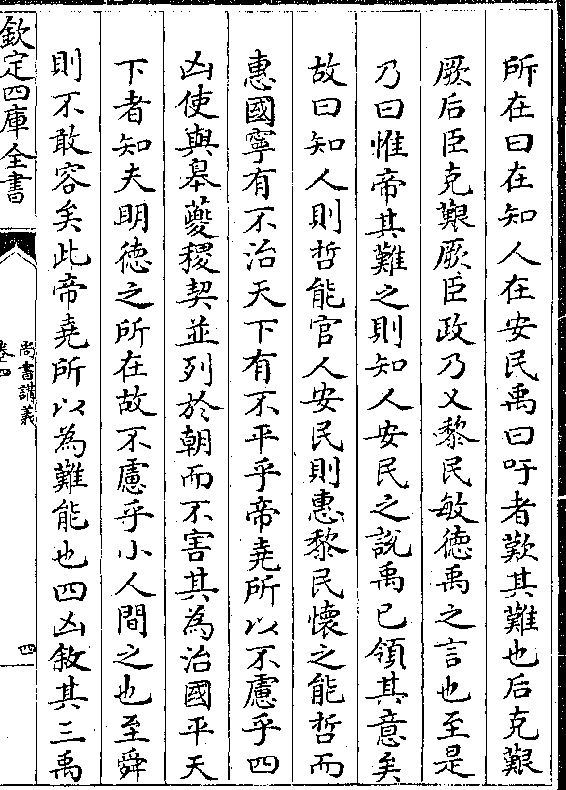 所在曰在知人在安民禹曰吁者歎其難也后克艱
厥后臣克艱厥臣政乃乂黎民敏德禹之言也至是
乃曰惟帝其難之則知人安民之說禹已領其意矣
故曰知人則哲能官人安民則惠黎民懷之能哲而
惠國寧有不治天下有不平乎帝堯所以不慮乎四
凶使與皋夔稷契並列於朝而不害其為治國平天
下者知夫明德之所在故不慮乎小人間之也至舜
則不敢容矣此帝堯所以為難能也四凶敘其三禹
欽定四庫全書
尚書講義
卷四
四